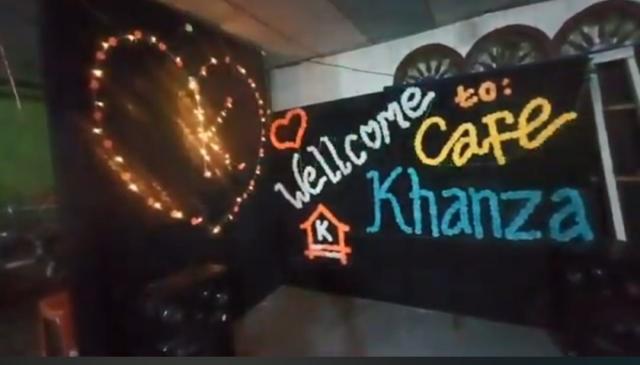 K
Wellcome to:
Cafe
Khanza
K